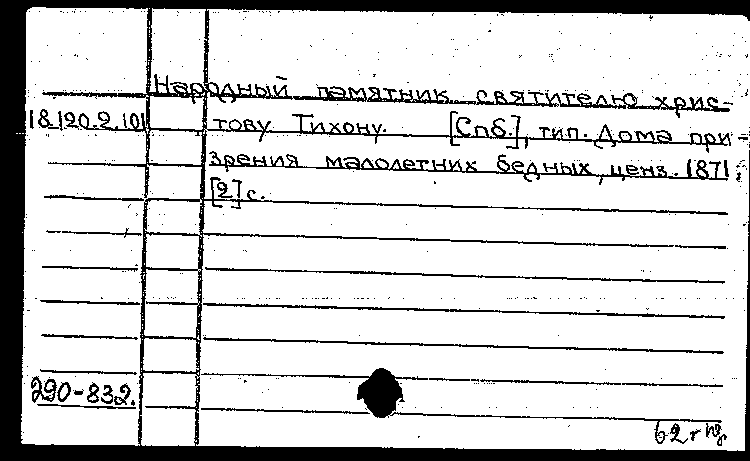 Народный памятник святителю хрис-
18.120.2.101 тову Тихону. [Спб.], тип. Дома при-
зрения малолетних бедных, ценз. 1871.
[2] с.
290-832.
62 г